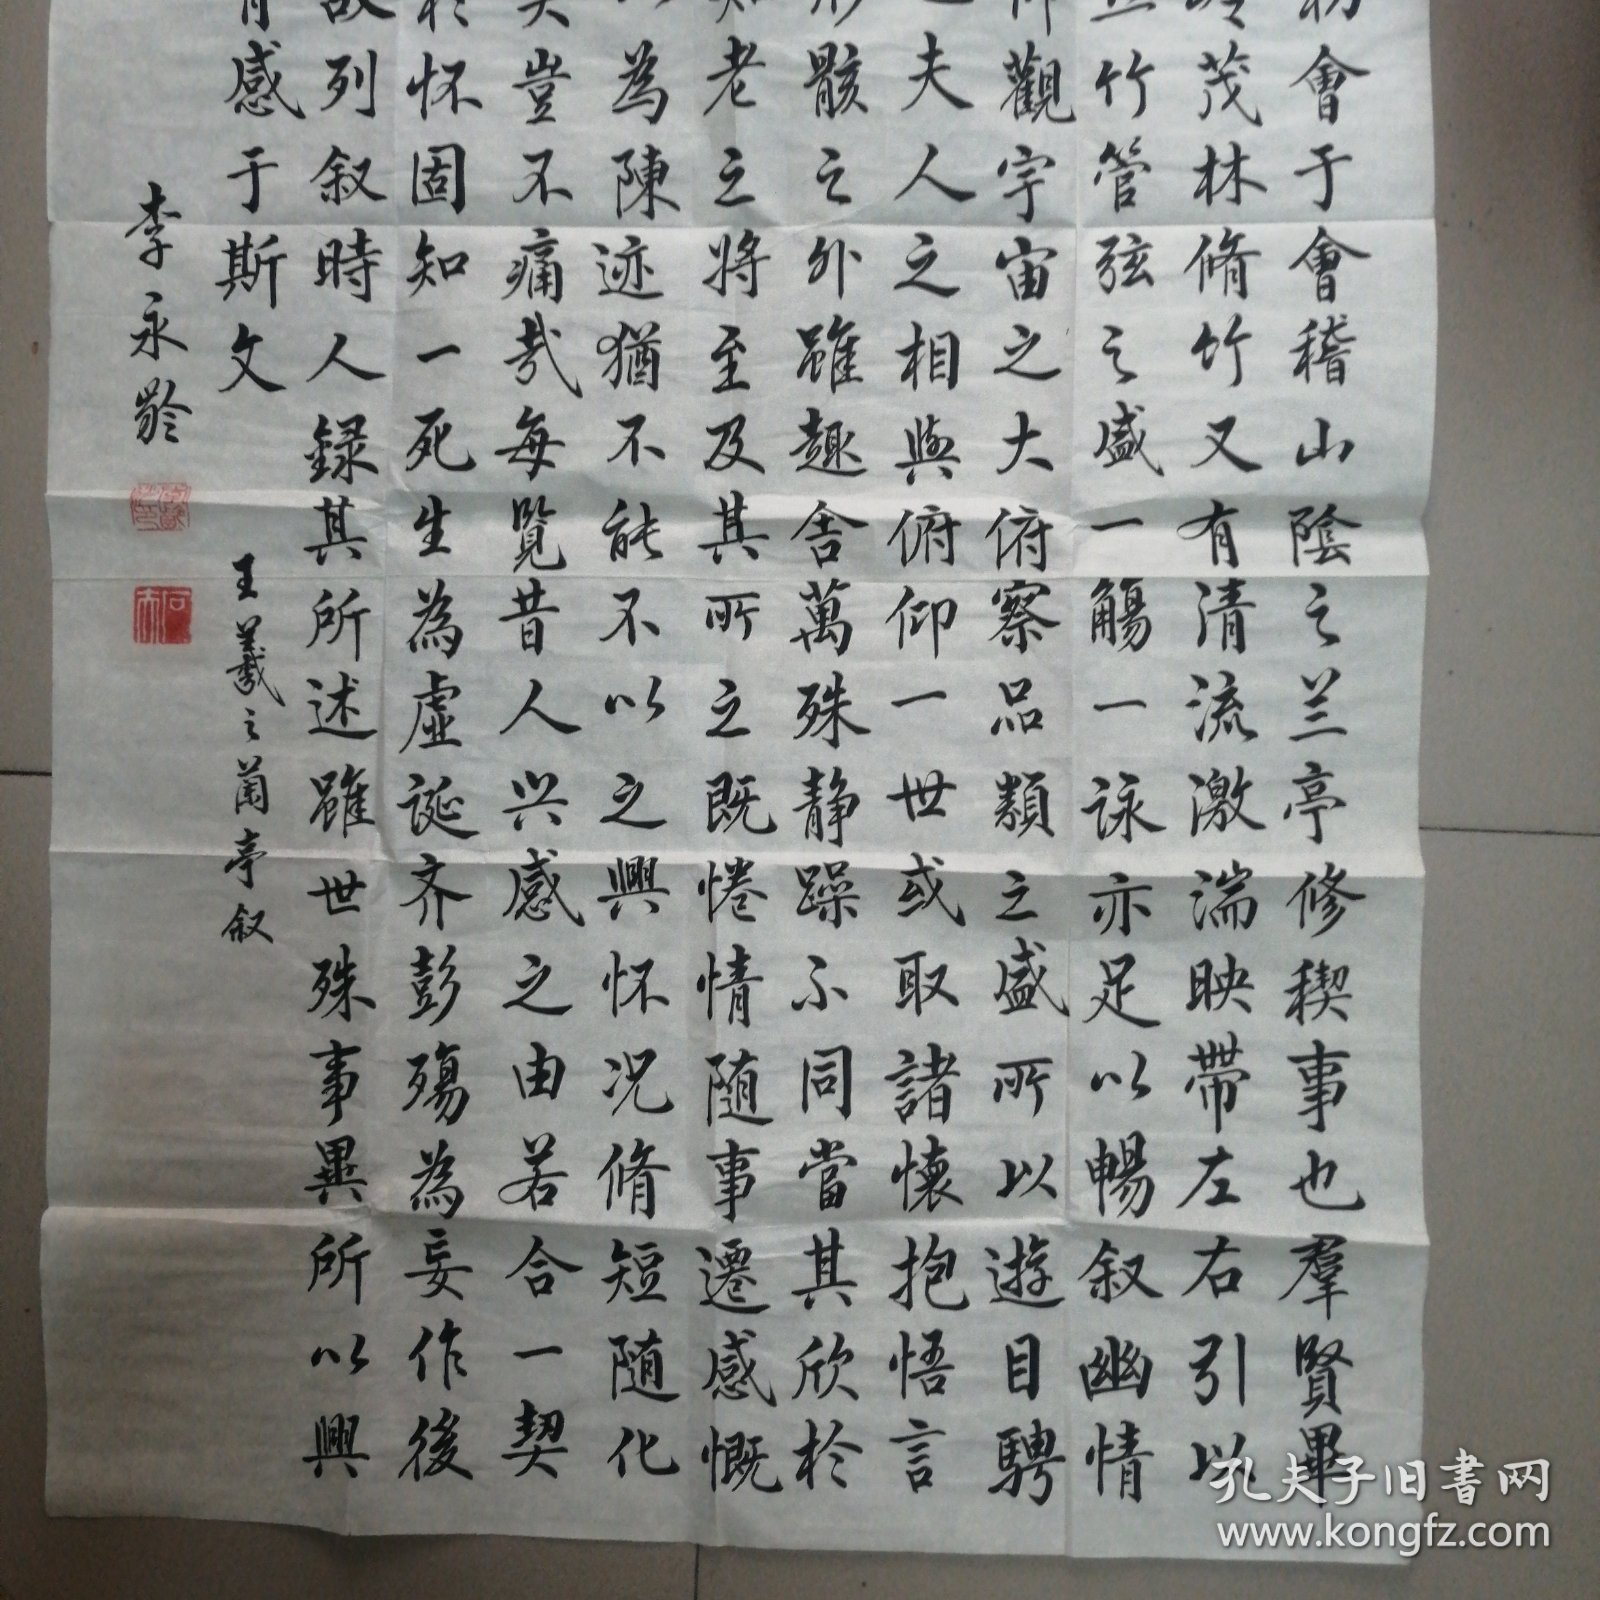 初會于會稽山陰之兰亭修稧事也羣賢畢
茂林脩竹又有清流激湍映帶左右引以
竹管弦之盛一觴一詠亦足以暢叙幽情
仰觀宇宙之大俯察品類之盛所以遊目騁
夫人之相與俯仰一世或取諸懷抱悟言
形骸之外雖趣舍萬殊静躁不同當其欣於
知老之將至及其所之既惓情随事遷感慨
以為陳迹猶不能不以之興怀况脩短随化
矣豈不痛哉每覧昔人兴感之由若合一契
於怀固知一死生為虛誕齐彭殤為妄作後
故列叙時人録其所述雖世殊事異所以興
有感于斯文
王羲之蘭亭叙
李永齡
孔夫子旧书网
www.kongfz.com